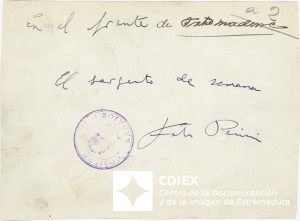 a 2
En el frente de Extremadura
El sargento de semana
CDIEX
Centro de la Documentación
y de la Imagen de Extremadura